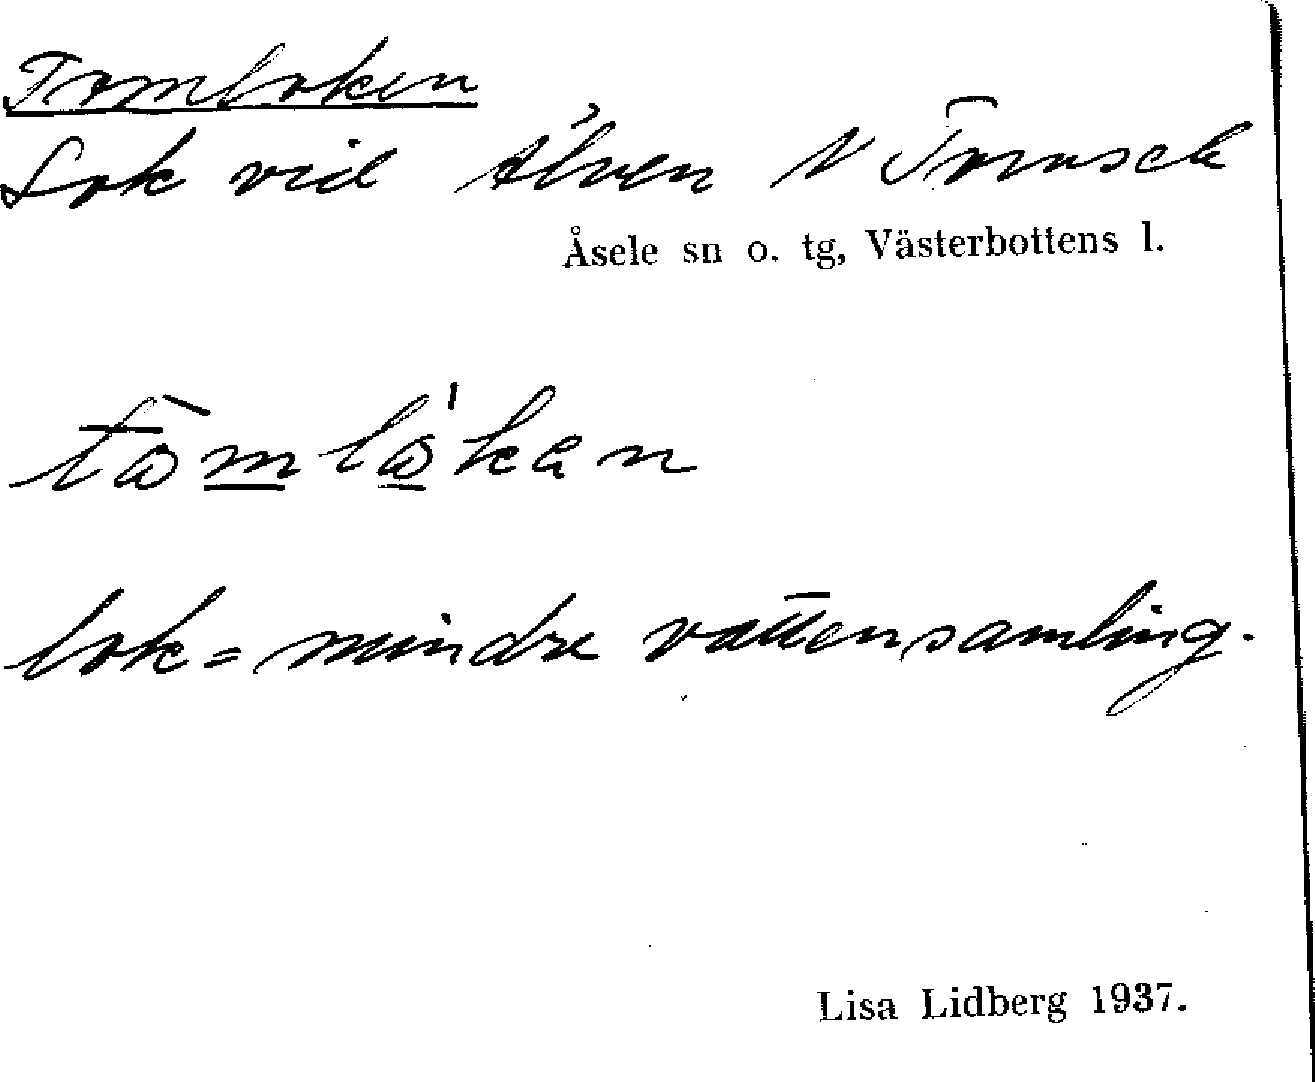 Tomloken
Lok vid älven N Torvsele
Åsele sn o. tg, Västerbottens l.
tòmlo̱'kan
lok = mindre vattensamling.
Lisa Lidberg 1937.